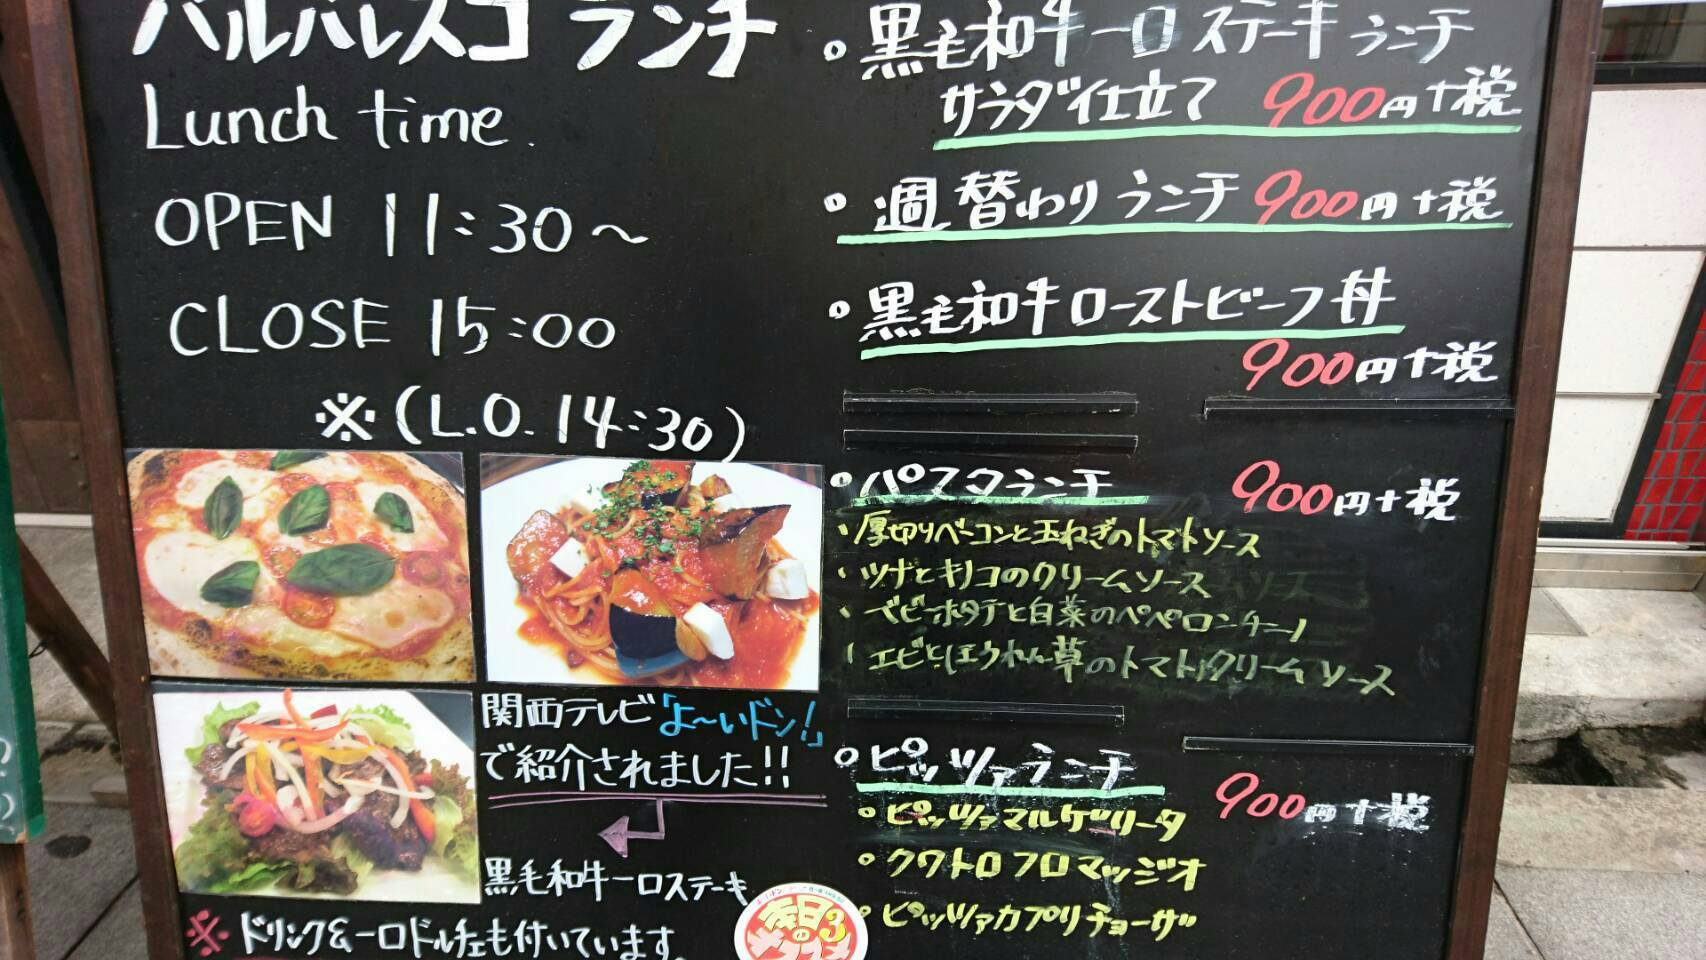 バルバレスコ ランチ
Lunch time.
OPEN 11:30～
CLOSE 15:00
※(L.O. 14:30)
関西テレビ「よ～いドン!」
で紹介されました!!
黒毛和牛一口ステーキ
※ ドリンク&一口ドルチェも付いています。
。黒毛和牛一口ステーキランチ
サラダ仕立て 900円+税
。週替わりランチ 900円+税
。黒毛和牛ローストビーフ丼
900円+税
。パスタランチ 900円+税
・厚切りベーコンと玉ねぎのトマトソース
・ツナとキノコのクリームソース
・ベビーホタテと白菜のペペロンチーノ
・エビとほうれん草のトマトクリームソース
。ピッツァランチ 900円+税
。ピッツァマルゲリータ
。クワトロフロマッジオ
。ピッツァカプリチョーザ